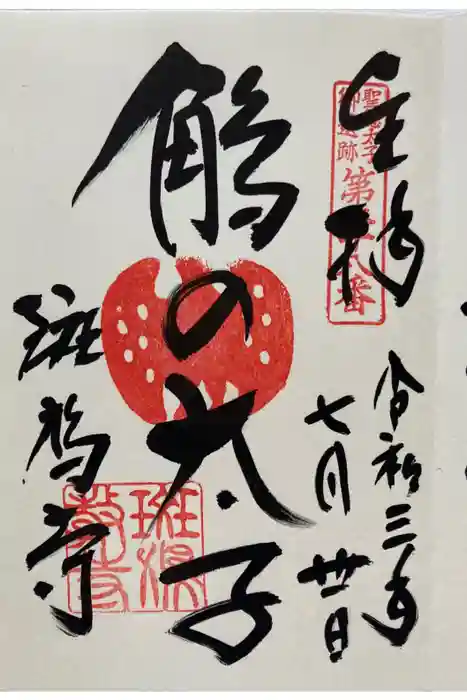 奉拝
聖徳太子
御遺跡
第廿八番
令和三年
七月廿日
鵤の太子
斑鳩寺